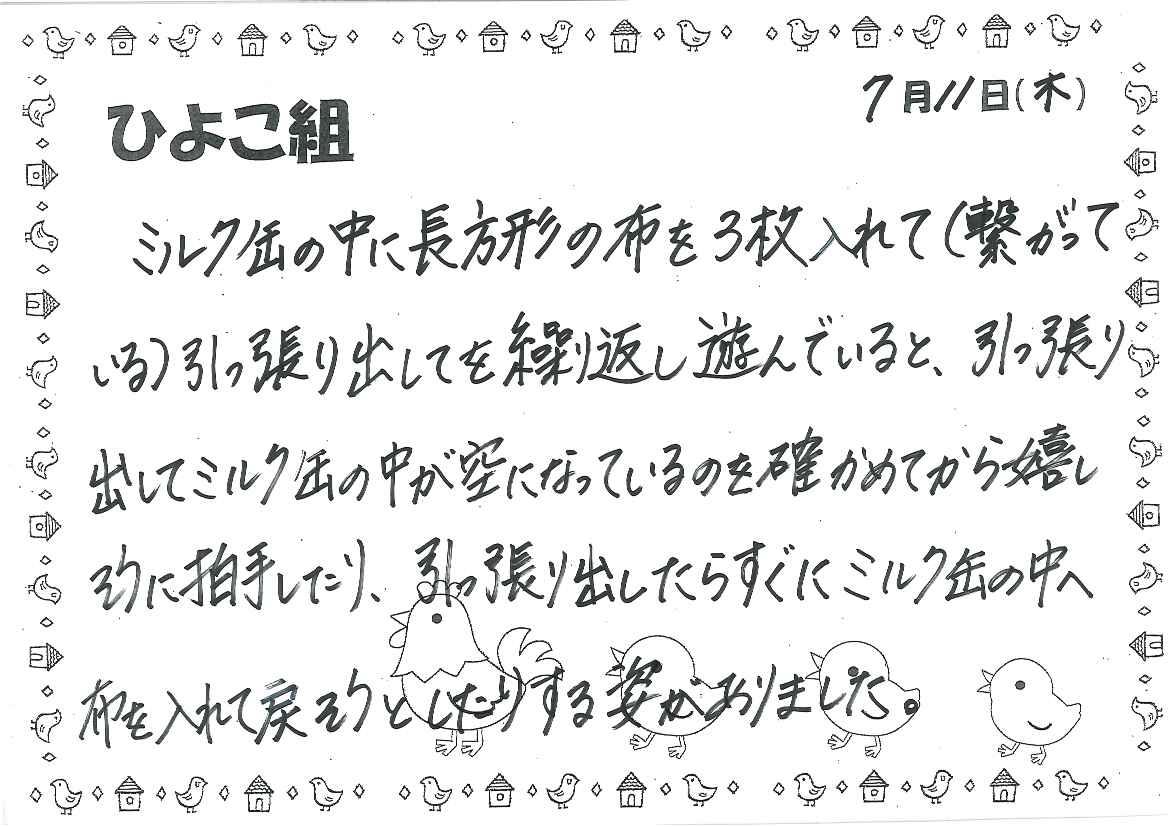 7月11日(木)
ひよこ組
ミルク缶の中に長方形の布を3枚入れて(繋がって
いる)引っ張り出してを繰り返し遊んでいると、引っ張り
出してミルク缶の中が空になっているのを確かめてから嬉し
そうに拍手したり、引っ張り出したらすぐにミルク缶の中へ
布を入れて戻そうとしたりする姿がありました。